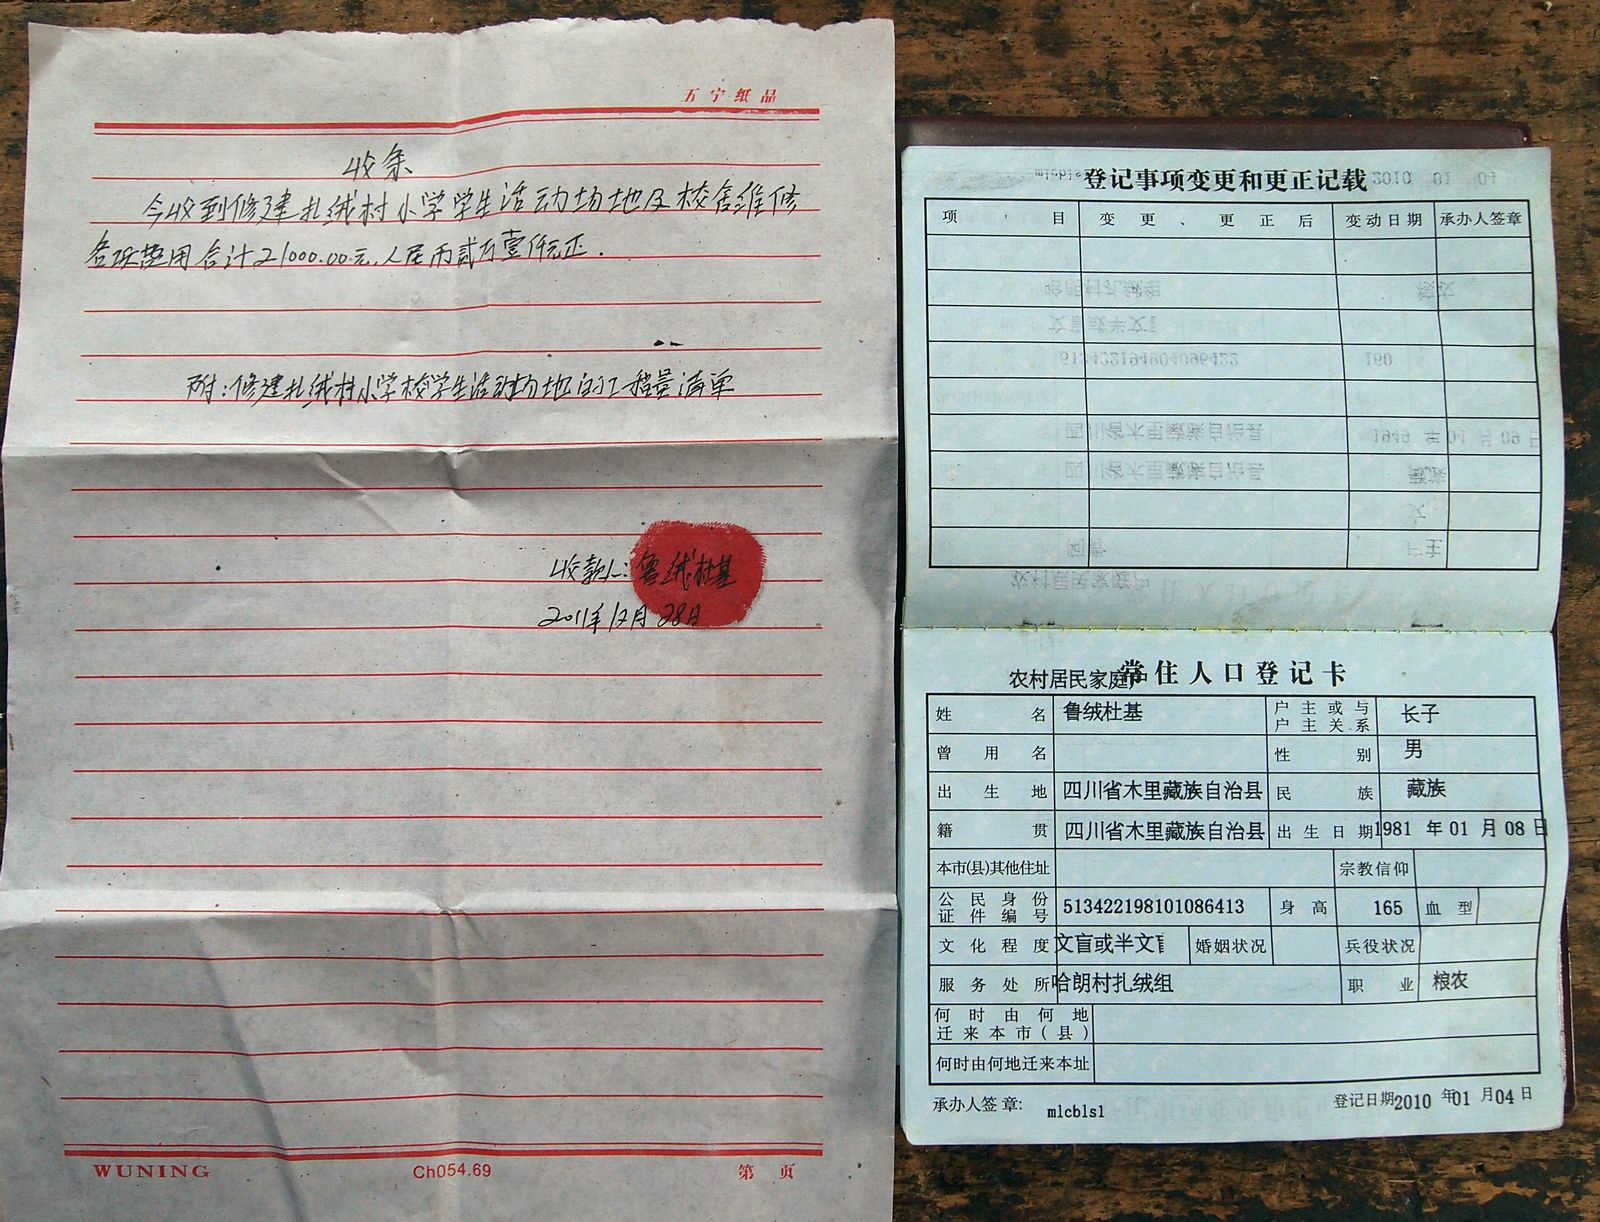 五宁纸品
收条
今收到修建扎绒村小学学生活动场地及校舍维修
各项费用合计21000.00元,人民币贰万壹仟元正.
附:修建扎绒村小学校学生活动场地的工程量清单
收款人:鲁绒杜基
2011年12月28日
WUNING Ch054.69 第 页
登记事项变更和更正记载
项 目 变更、更正后 变动日期 承办人签章
常住人口登记卡
农村居民家庭户
姓名 鲁绒杜基 户主或与户主关系 长子
曾用名 性别 男
出生地 四川省木里藏族自治县 民族 藏族
籍贯 四川省木里藏族自治县 出生日期 1981 年 01 月 08 日
本市(县)其他住址 宗教信仰
公民身份证件编号 513422198101086413 身高 165 血型
文化程度 文盲或半文盲 婚姻状况 兵役状况
服务处所 哈朗村扎绒组 职业 粮农
何时由何地迁来本市(县)
何时由何地迁来本址
承办人签章: mlcblsl 登记日期 2010 年 01 月 04 日